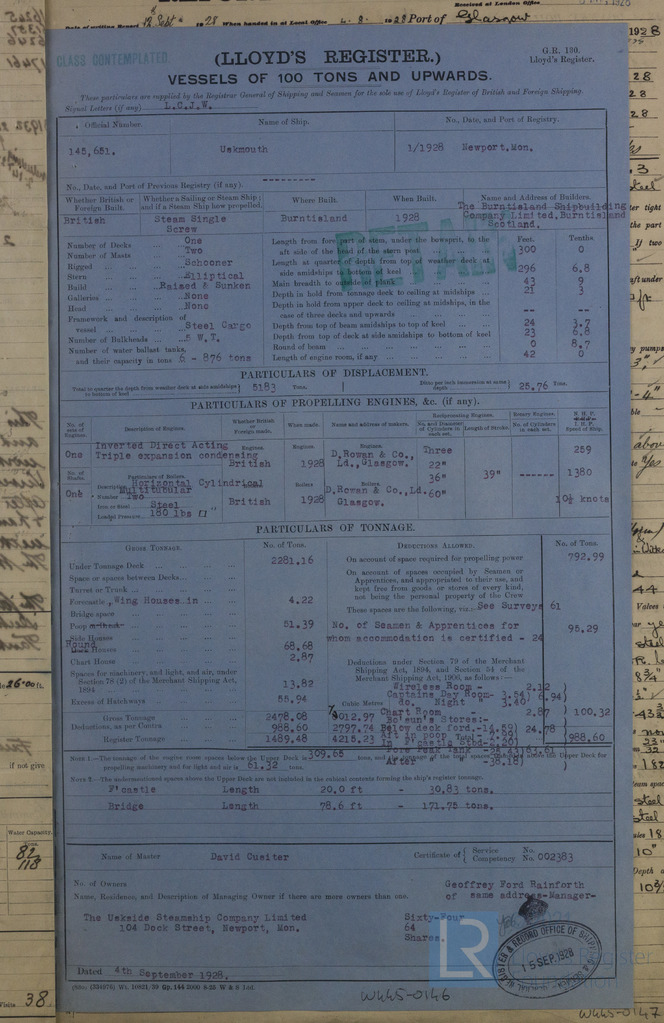 Received at London Office
Date of writing Report 12 Sept 1928 When handed in at Local Office 4.9.1928 Port of Glasgow
CLASS CONTEMPLATED.
(LLOYD'S REGISTER.)
G.R. 190.
Lloyd's Register.
VESSELS OF 100 TONS AND UPWARDS.
These particulars are supplied by the Registrar General of Shipping and Seamen for the sole use of Lloyd's Register of British and Foreign Shipping.
Signal Letters (if any) L.C.J.W.
Official Number. Name of Ship. No., Date, and Port of Registry.
145,651. Uskmouth 1/1928 Newport, Mon.
No., Date, and Port of Previous Registry (if any). ---------
Whether British or Foreign Built. Whether a Sailing or Steam Ship; and if a Steam Ship how propelled. Where Built. When Built. Name and Address of Builders.
British Steam Single Screw Burntisland 1928 The Burntisland Shipbuilding Company Limited, Burntisland Scotland.
RETAIN
Feet. Tenths
Number of Decks One
Number of Masts Two
Rigged Schooner
Stern Elliptical
Build Raised & Sunken
Galleries None
Head None
Framework and description of vessel Steel Cargo
Number of Bulkheads 5 W.T.
Number of water ballast tanks, and their capacity in tons 6 - 876 tons
Length from fore part of stem, under the bowsprit, to the aft side of the head of the stern post 300 0
Length at quarter of depth from top of weather deck at side amidships to bottom of keel 296 6.8
Main breadth to outside of plank 43 9
Depth in hold from tonnage deck to ceiling at midships 21 3
Depth in hold from upper deck to ceiling at midships, in the case of three decks and upwards -- --
Depth from top of beam amidships to top of keel 24 3.7
Depth from top of deck at side amidships to bottom of keel 23 6.8
Round of beam 0 8.7
Length of engine room, if any 42 0
PARTICULARS OF DISPLACEMENT.
Total to quarter the depth from weather deck at side amidships to bottom of keel 5183 Tons. Ditto per inch immersion at same depth 25.76 Tons.
PARTICULARS OF PROPELLING ENGINES, &c. (if any).
No. of sets of Engines. Description of Engines. Whether British or Foreign made. When made. Name and address of makers. Reciprocating Engines. No. and Diameter of Cylinders in each set. Length of Stroke. Rotary Engines. No. of Cylinders in each set. N.H.P. I.H.P. Speed of Ship.
One Inverted Direct Acting Triple expansion condensing Engines. British Engines. 1928 Engines. D. Rowan & Co., Ld., Glasgow. Three 22" 36" 60" 39" ------ 259 1380 10½ knots
No. of Shafts. Particulars of Boilers.
One Description Horizontal Cylindrical Multitubular
Number Two
Iron or Steel Steel
Loaded Pressure 180 lbs
British Boilers 1928 Boilers. D. Rowan & Co., Ld. Glasgow.
PARTICULARS OF TONNAGE.
GROSS TONNAGE. No. of Tons.
Under Tonnage Deck 2281.16
Space or spaces between Decks
Turret or Trunk
Forecastle, Wing Houses in 4.22
Bridge space
Poop 51.39
Side Houses
Round Houses 68.68
Chart House 2.87
Spaces for machinery, and light, and air, under Section 78 (2) of the Merchant Shipping Act, 1894 13.82
Excess of Hatchways 55.94
Cubic Metres
Gross Tonnage 2478.08 7012.97
Deductions, as per Contra 988.60 2797.74
Register Tonnage 1489.48 4215.23
DEDUCTIONS ALLOWED. No. of Tons.
On account of space required for propelling power 792.99
On account of spaces occupied by Seamen or Apprentices, and appropriated to their use, and kept free from goods or stores of every kind, not being the personal property of the Crew
These spaces are the following, viz.: See Surveys 61
No. of Seamen & Apprentices for whom accommodation is certified - 24 95.29
Deductions under Section 79 of the Merchant Shipping Act, 1894, and Section 54 of the Merchant Shipping Act, 1906, as follows:—
Wireless Room - 2.12
Captains Day Room - 3.54) 6.94)
do. Night 3.40
Chart Room - 2.87 100.32
Bo'sun's Stores:-
Below deck ford. 24.78
Fore Peak Tank
After - 38.18)
988.60
NOTE 1.—The tonnage of the engine room spaces below the Upper Deck is 309.65 tons, and the tonnage of the total spaces framed in above the Upper Deck for propelling machinery and for light and air is 51.32 tons.
NOTE 2.—The undermentioned spaces above the Upper Deck are not included in the cubical contents forming the ship's register tonnage.
F'castle Length 20.0 ft - 30.83 tons.
Bridge Length 78.6 ft - 171.75 tons.
Name of Master David Cusiter Certificate of Service Competency No. No. 002383
No. of Owners
Name, Residence, and Description of Managing Owner if there are more owners than one.
Geoffrey Ford Rainforth of same address-Manager-
The Uskside Steamship Company Limited
104 Dock Street, Newport, Mon.
Sixty-Four
64
Shares.
REGISTER & RECORD OFFICE OF SHIPPING
15 SEP 1928
Dated 4th September 1928.
W445-0146
W445-0147
if not give
Water Capacity.
Visits 38